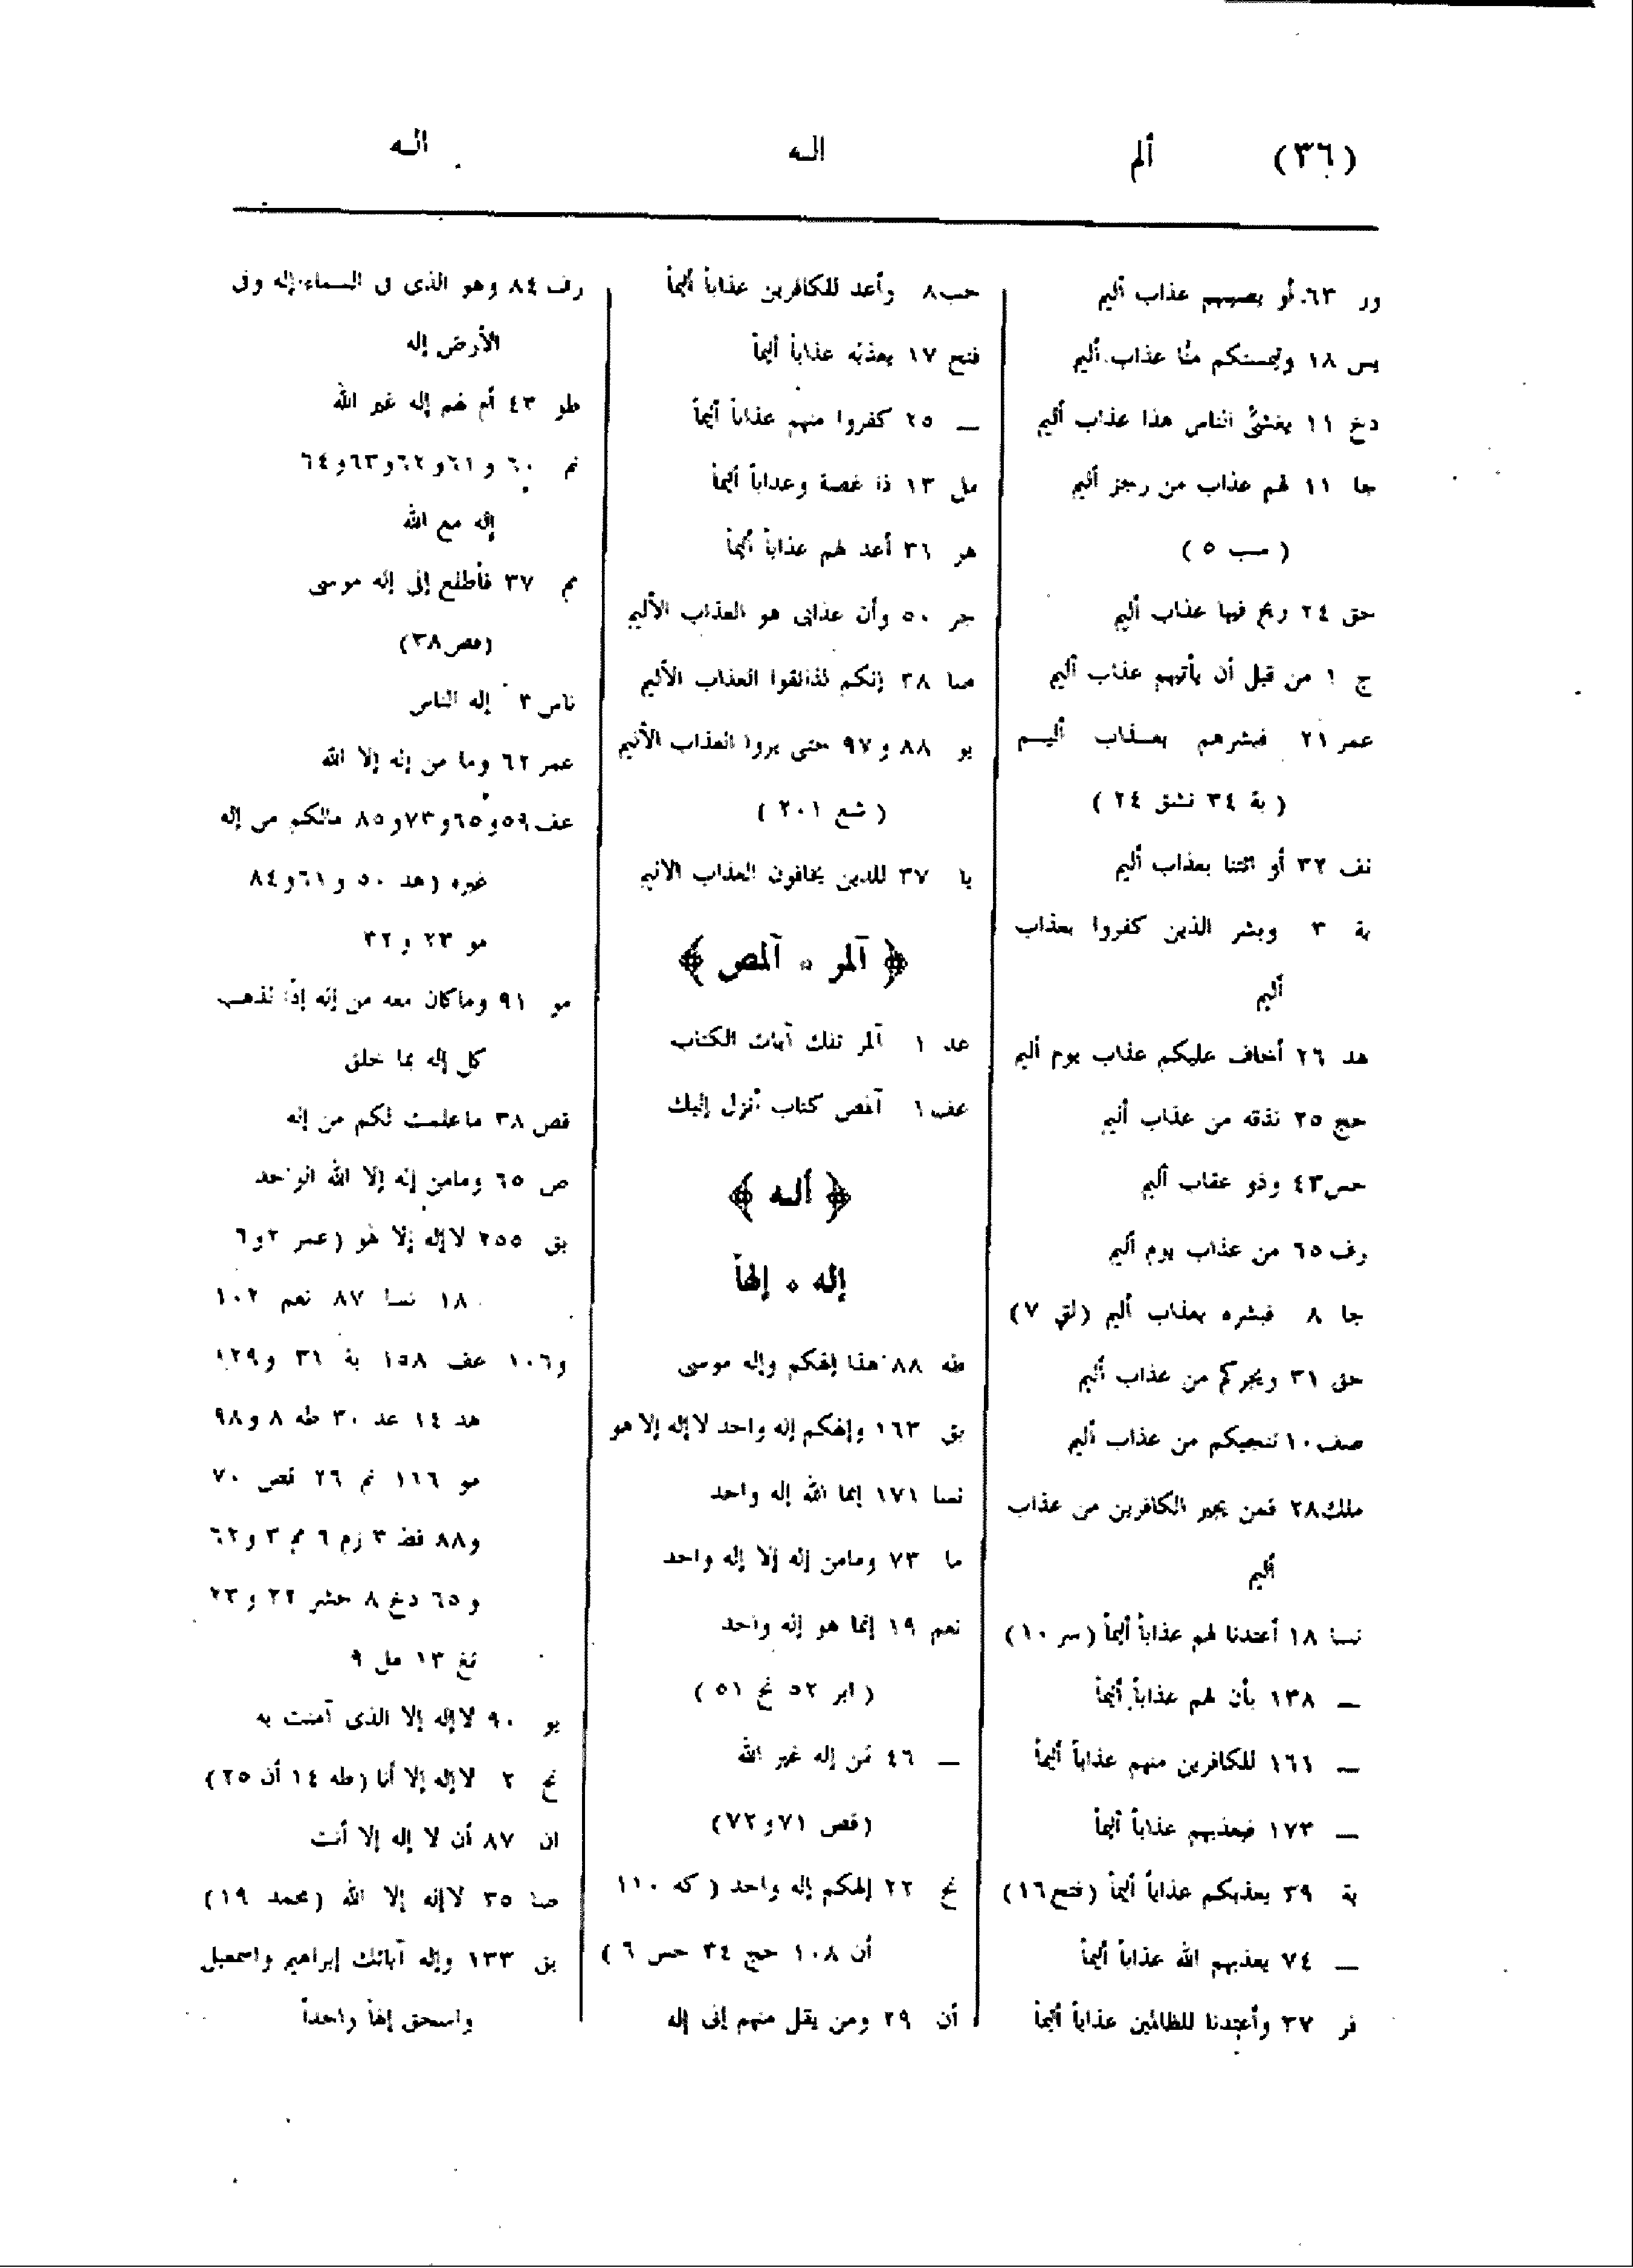 (٣٦) ألم الـه الـه
ور ٦٣ أو يصيبهم عذاب أليم
يس ١٨ وليمسنكم منّا عذاب أليم
دخ ١١ يغشى الناس هذا عذاب أليم
جا ١١ لهم عذاب من رجز أليم
( سب ٥ )
حق ٢٤ ريح فيها عذاب أليم
ح ١ من قبل أن يأتيهم عذاب أليم
عمر ٢١ فبشرهم بعـذاب أليـم
( بة ٣٤ نشق ٢٤ )
نف ٣٢ أو ائتنا بعذاب أليم
بة ٣ وبشر الذين كفروا بعذاب
أليم
هد ٢٦ أخاف عليكم عذاب يوم أليم
حج ٢٥ نذقه من عذاب أليم
حس ٤٣ وذو عقاب أليم
رف ٦٥ من عذاب يوم أليم
جا ٨ فبشره بعذاب أليم (لق ٧)
حق ٣١ ويجركم من عذاب أليم
صف ١٠ تنجيكم من عذاب أليم
ملك ٢٨ فمن يجير الكافرين من عذاب
أليم
نسا ١٨ أعتدنا لهم عذاباً أليماً (سر ١٠)
ــ ١٣٨ بأن لهم عذاباً أليماً
ــ ١٦١ للكافرين منهم عذاباً أليماً
ــ ١٧٣ فيعذبهم عذاباً أليماً
بة ٣٩ يعذبكم عذاباً أليماً (فتح ١٦)
ــ ٧٤ يعذبهم الله عذاباً أليماً
فر ٣٧ وأعتدنا للظالمين عذاباً أليماً
حب ٨ وأعد للكافرين عذاباً أليماً
فتح ١٧ يعذبه عذاباً أليماً
ــ ٢٥ كفروا منهم عذاباً أليماً
مل ١٣ ذا غصة وعذاباً أليماً
هر ٣١ أعد لهم عذاباً أليماً
جر ٥٠ وأن عذابى هو العذاب الأليم
صا ٣٨ إنكم لذائقوا العذاب الأليم
يو ٨٨ و٩٧ حتى يروا العذاب الأليم
( شع ٢٠١ )
يا ٣٧ للذين يخافون العذاب الأليم
﴿ آلمر ٥ آلمص ﴾
عد ١ آلمر تلك آيات الكتاب
عف ١ آلمص كتاب أنزل إليك
﴿ ألـه ﴾
إله ٥ إلهاً
طه ٨٨ هذا إلهكم وإله موسى
بق ١٦٣ وإلهكم إله واحد لا إله إلا هو
نسا ١٧١ إنما الله إله واحد
ما ٧٣ ومامن إله إلا إله واحد
نعم ١٩ إنما هو إله واحد
( ابر ٥٢ نح ٥١ )
ــ ٤٦ مَن إله غير الله
(قص ٧١ و٧٢)
نح ٢٢ إلهكم إله واحد ( كه ١١٠
أن ١٠٨ حج ٣٤ حس ٦ )
أن ٢٩ ومن يقل منهم إنى إله
رف ٨٤ وهو الذى فى السماء إله وفى
الأرض إله
طو ٤٣ أم لهم إله غير الله
نم ٦٠ و ٦١ و ٦٢ و ٦٣ و ٦٤
إله مع الله
مم ٣٧ فأطلع إلى إله موسى
(قص ٣٨)
ناس ٣ إله الناس
عمر ٦٢ وما من إله إلا الله
عف ٥٩ و ٦٥ و ٧٣ و ٨٥ مالكم من إله
غيره (هد ٥٠ و ٦١ و ٨٤
مو ٢٣ و ٣٢
مو ٩١ وماكان معه من إله إذاً لذهب
كل إله بما خلق
قص ٣٨ ماعلمت لكم من إله
ص ٦٥ ومامن إله إلا الله الواحد
بق ٢٥٥ لا إله إلا هو (عمر ٢ و ٦
١٨ نسا ٨٧ نعم ١٠٢
و١٠٦ عف ١٥٨ بة ٣١ و١٢٩
هد ١٤ عد ٣٠ طه ٨ و٩٨
مو ١١٦ نم ٢٦ قص ٧٠
و٨٨ فط ٣ زم ٦ مم ٣ و٦٢
و ٦٥ دخ ٨ حشر ٢٢ و ٢٣
تغ ١٣ مل ٩
يو ٩٠ لا إله إلا الذى آمنت به
نح ٢ لا إله إلا أنا (طه ١٤ أن ٢٥)
ان ٨٧ أن لا إله إلا أنت
صا ٣٥ لا إله إلا الله (محمد ١٩)
بق ١٣٣ وإله آبائك إبراهيم واسمعيل
واسحق إلهاً واحداً